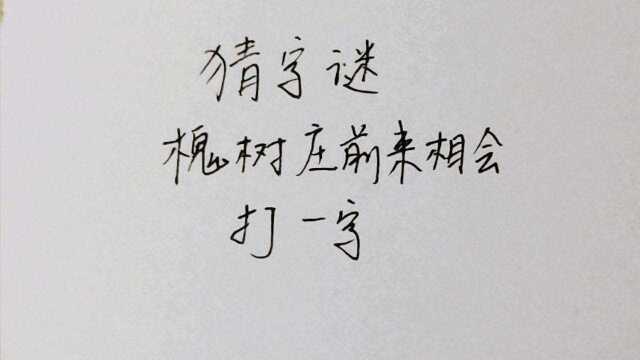 猜字谜
槐树庄前来相会
打一字